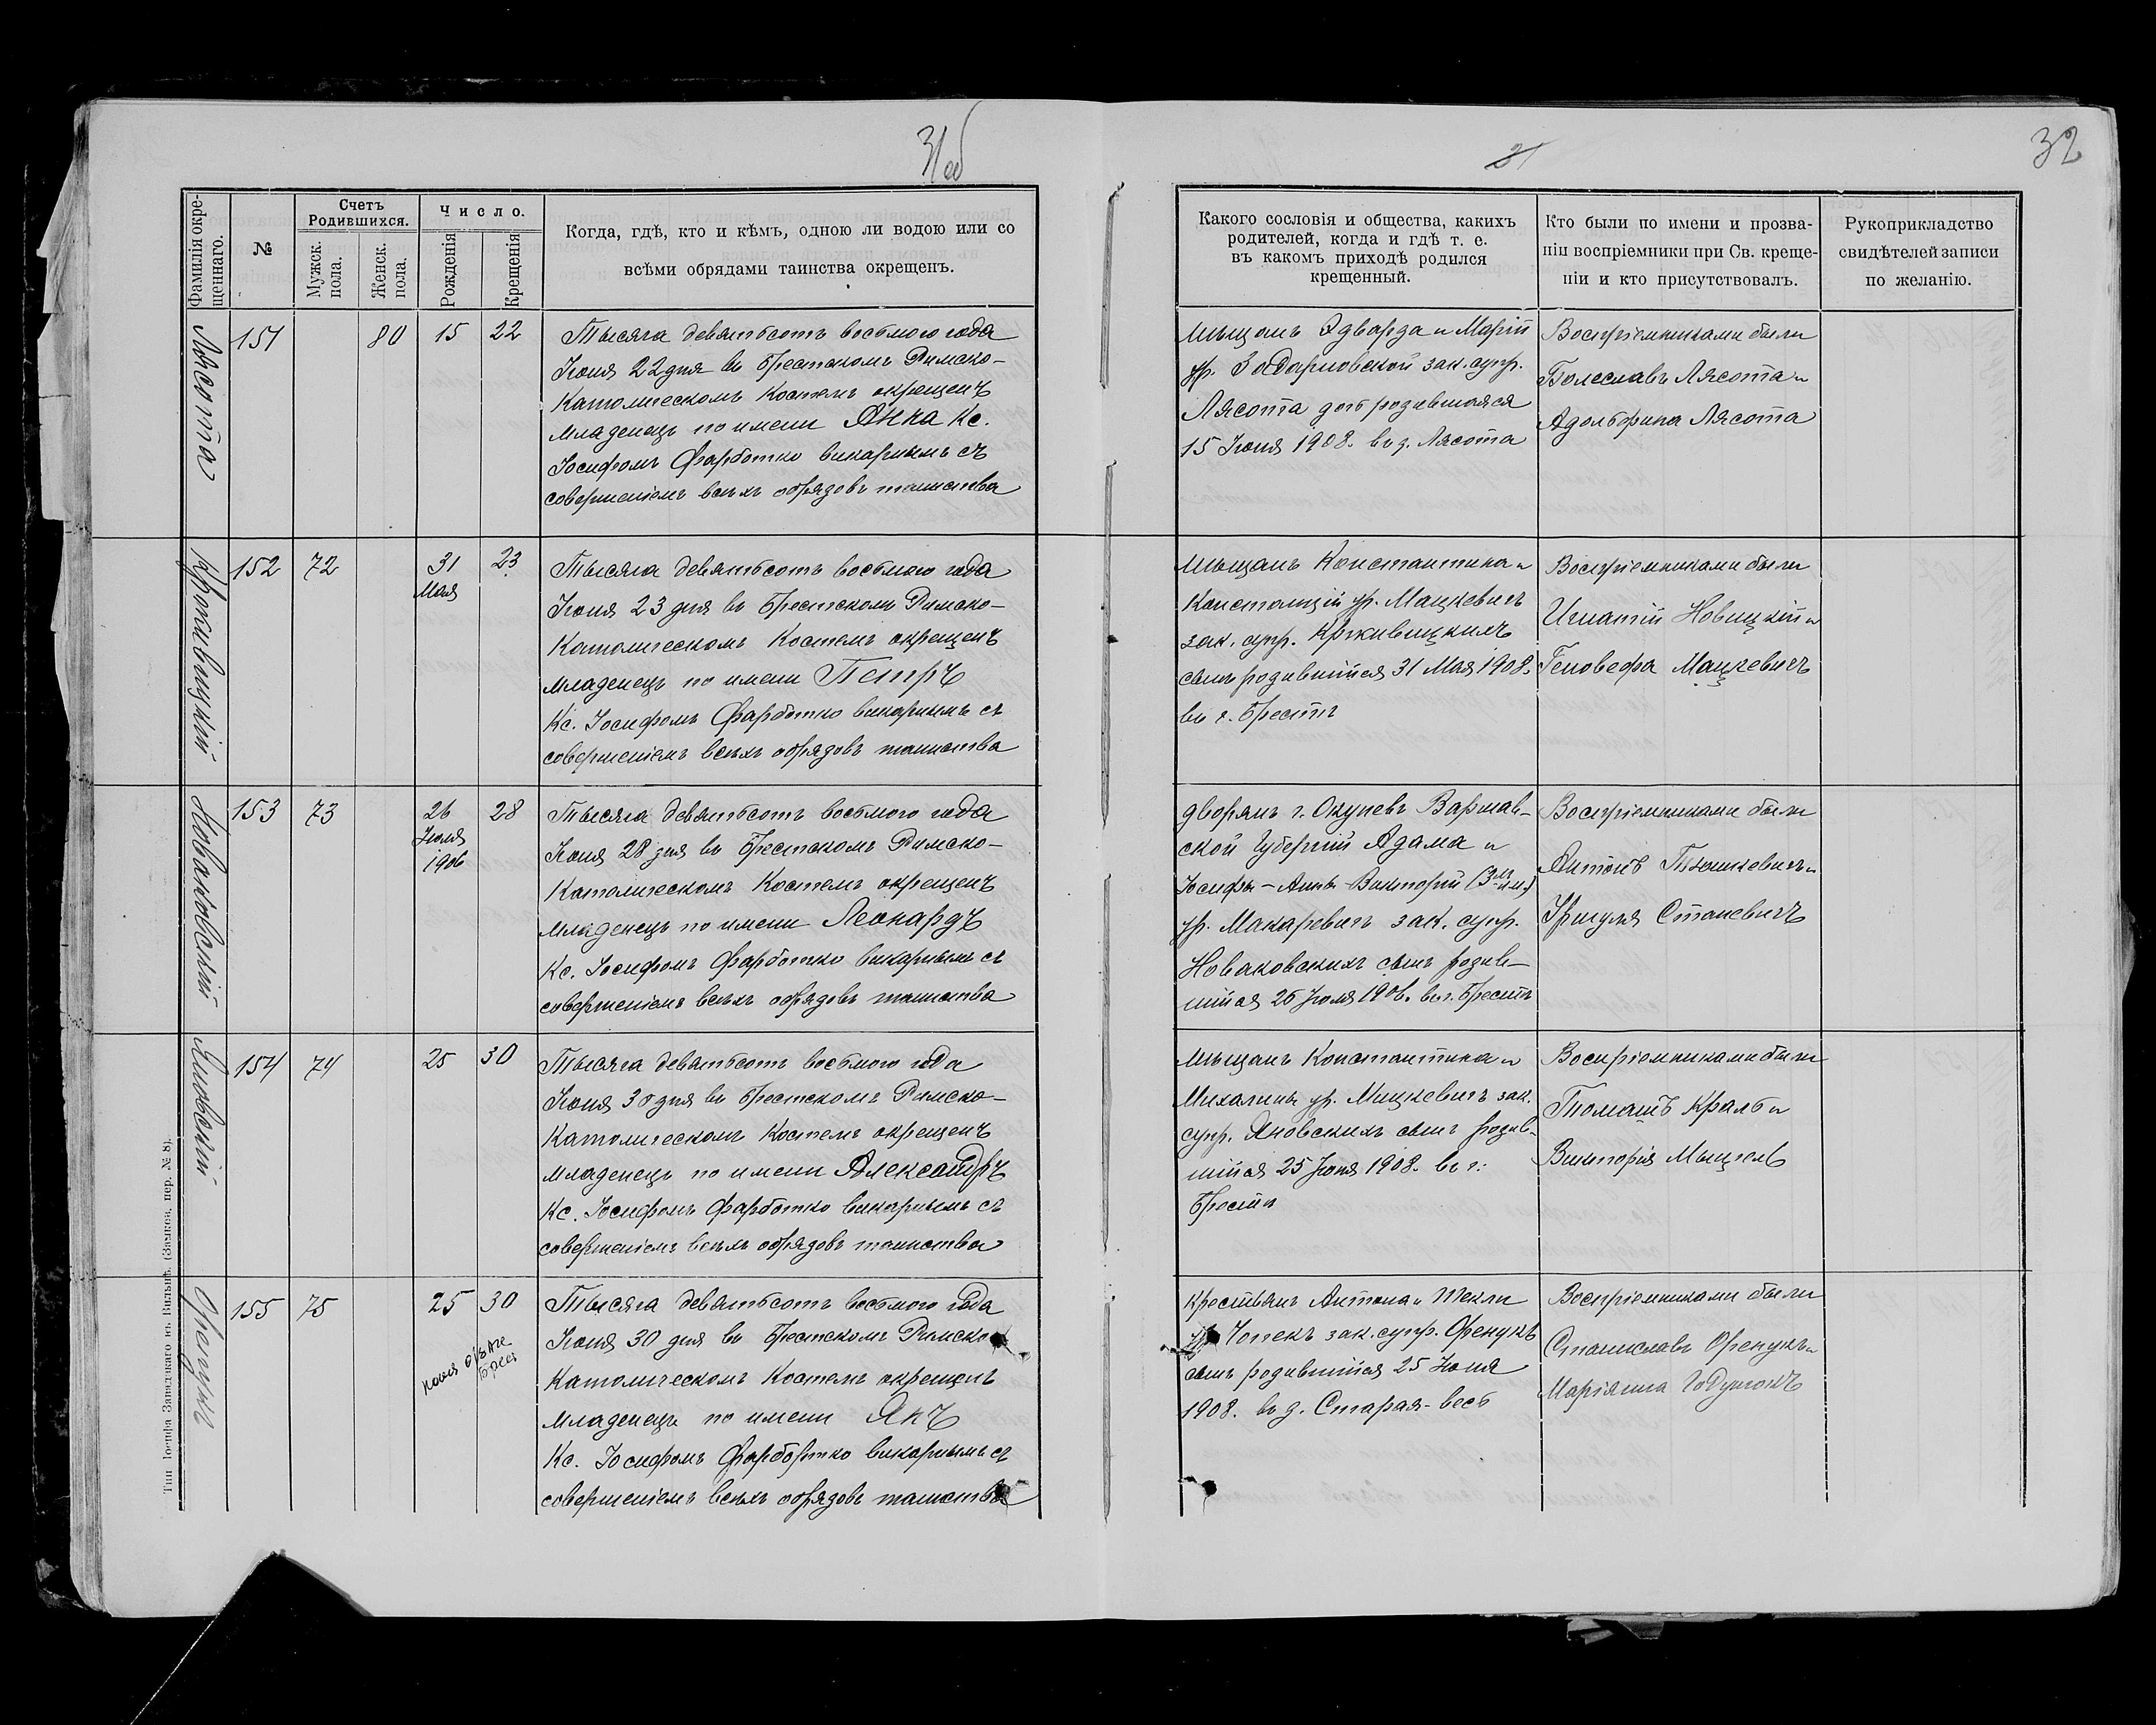 31об
31
32
Фамилія окре-
щеннаго.
№
Счетъ
Родившихся.
Мужск.
пола.
Женск.
пола.
Число.
Рожденія
Крещенія
Когда, гдѣ, кто и кѣмъ, одною ли водою или со
всѣми обрядами таинства окрещенъ.
Какого сословія и общества, какихъ
родителей, когда и гдѣ т. е.
въ какомъ приходѣ родился
крещенный.
Кто были по имени и прозва-
ніи воспріемники при Св. креще-
ніи и кто присутствовалъ.
Рукоприкладство
свидѣтелей записи
по желанію.
Лясота
151
80
15
22
Тысяча девятьсотъ восьмого года
Іюня 22 дня въ Брестскомъ Римско-
Католическомъ Костелѣ окрещенъ
младенецъ по имени Анна Кс.
Іосифомъ Фарботко викарнымъ съ
совершеніемъ всѣхъ обрядовъ таинства
мѣщанъ Эдварда и Маріи
ур. Задарновской зак. супр.
Лясота дочь родившаяся
15 Іюня 1908. въ д. Лясота
Воспріемниками были
Болеславъ Лясота и
Адольфина Лясота
Крживицкій
152
72
31
Мая
23
Тысяча девятьсотъ восьмого года
Іюня 23 дня въ Брестскомъ Римско-
Католическомъ Костелѣ окрещенъ
младенецъ по имени Петръ
Кс. Іосифомъ Фарботко викарнымъ съ
совершеніемъ всѣхъ обрядовъ таинства
мѣщанъ Константина и
Констанціи ур. Мацкевичъ
зак. супр. Крживицкихъ
сынъ родившійся 31 Мая 1908.
въ г. Брестѣ
Воспріемниками были
Игнатій Новицкій и
Геновефа Мацкевичъ
Новаковскій
153
73
26
Іюля
1906
28
Тысяча девятьсотъ восьмого года
Іюня 28 дня въ Брестскомъ Римско-
Католическомъ Костелѣ окрещенъ
младенецъ по имени Леонардъ
Кс. Іосифомъ Фарботко викарнымъ съ
совершеніемъ всѣхъ обрядовъ таинства
дворянъ г. Окуневъ Варшав-
ской Губерніи Адама и
Іосифы-Анны-Викторіи
ур. Макаревичъ зак. супр.
Новаковскихъ сынъ родив-
шійся 26 Іюля 1906. въ г. Брестѣ
Воспріемниками были
Антонъ и
Станевичъ
Яновскій
154
74
25
30
Тысяча девятьсотъ восьмого года
Іюня 30 дня въ Брестскомъ Римско-
Католическомъ Костелѣ окрещенъ
младенецъ по имени Александръ
Кс. Іосифомъ Фарботко викарнымъ съ
совершеніемъ всѣхъ обрядовъ таинства
мѣщанъ Константина и
Михалины ур. Мицкевичъ зак.
супр. Яновскихъ сынъ родив-
шійся 25 Іюня 1908. въ г.
Брестѣ
Воспріемниками были
Томашъ Краль и
Викторія
Оренукъ
155
75
25
30
Тысяча девятьсотъ восьмого года
Іюня 30 дня въ Брестскомъ Римско
Католическомъ Костелѣ окрещенъ
младенецъ по имени Янъ
Кс. Іосифомъ Фарботко викарнымъ съ
совершеніемъ всѣхъ обрядовъ таинства
крестьянъ Антона и Текли
ур. Чопекъ зак. супр. Оренукъ
сынъ родившійся 25 Іюня
1908. въ д. Старая-весь
Воспріемниками были
Станиславъ Оренукъ и
Маріянна
Тип. Іосифа Завадзкаго въ Вильнѣ. (Замков. пер. № 8).